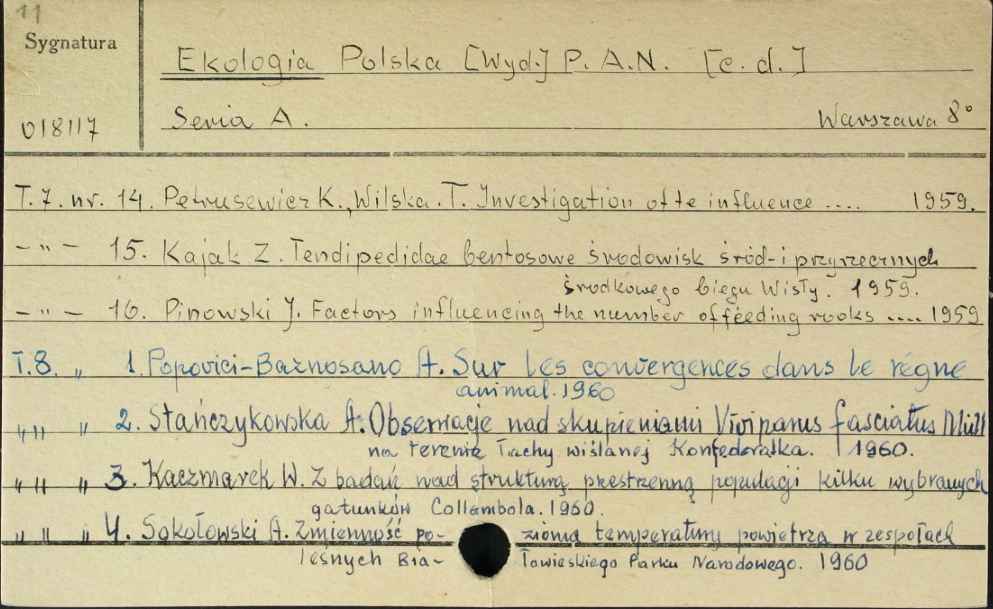 11
Sygnatura
Ekologia Polska [Wyd.] P. A. N. [c. d.]
018117
Seria A. Warszawa 8°
T. 7. nr. 14. Petrusewicz K., Wilska. T. Investigation of te influence .... 1959.
– " – 15. Kajak Z. Tendipedidae bentosowe środowisk śród- i przyrzecznych
środkowego biegu Wisły. 1959.
– " – 16. Pinowski J. Factors influencing the number of feeding rooks .... 1959
T. 8. " 1. Popovici-Baznosano A. Sur les convergences dans le règne
animal. 1960
" " " 2. Stańczykowska A. Obserwacje nad skupieniami Viviparus fasciatus Müll
na terenie Łachy wiślanej Konfederatka. 1960.
" " " 3. Kaczmarek W. Z badań nad strukturą przestrzenną populacji kilku wybranych
gatunków Collembola. 1960.
" " " 4. Sokołowski A. Zmienność po- zioma temperatury powietrza w zespołach
leśnych Bia- łowieskiego Parku Narodowego. 1960